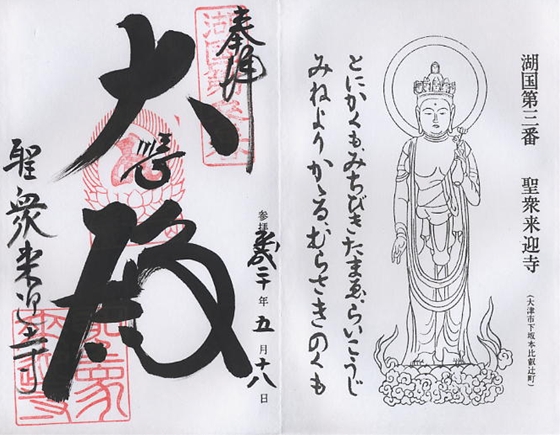 湖国第三番　聖衆来迎寺
（大津市下坂本比叡辻町）
とにかくも、みちびきたまゑ、らいこうじ
みねよりかゝる、むらさきのくも
奉拝
大悲殿
聖衆来迎寺
参拝 二十年五月十八日